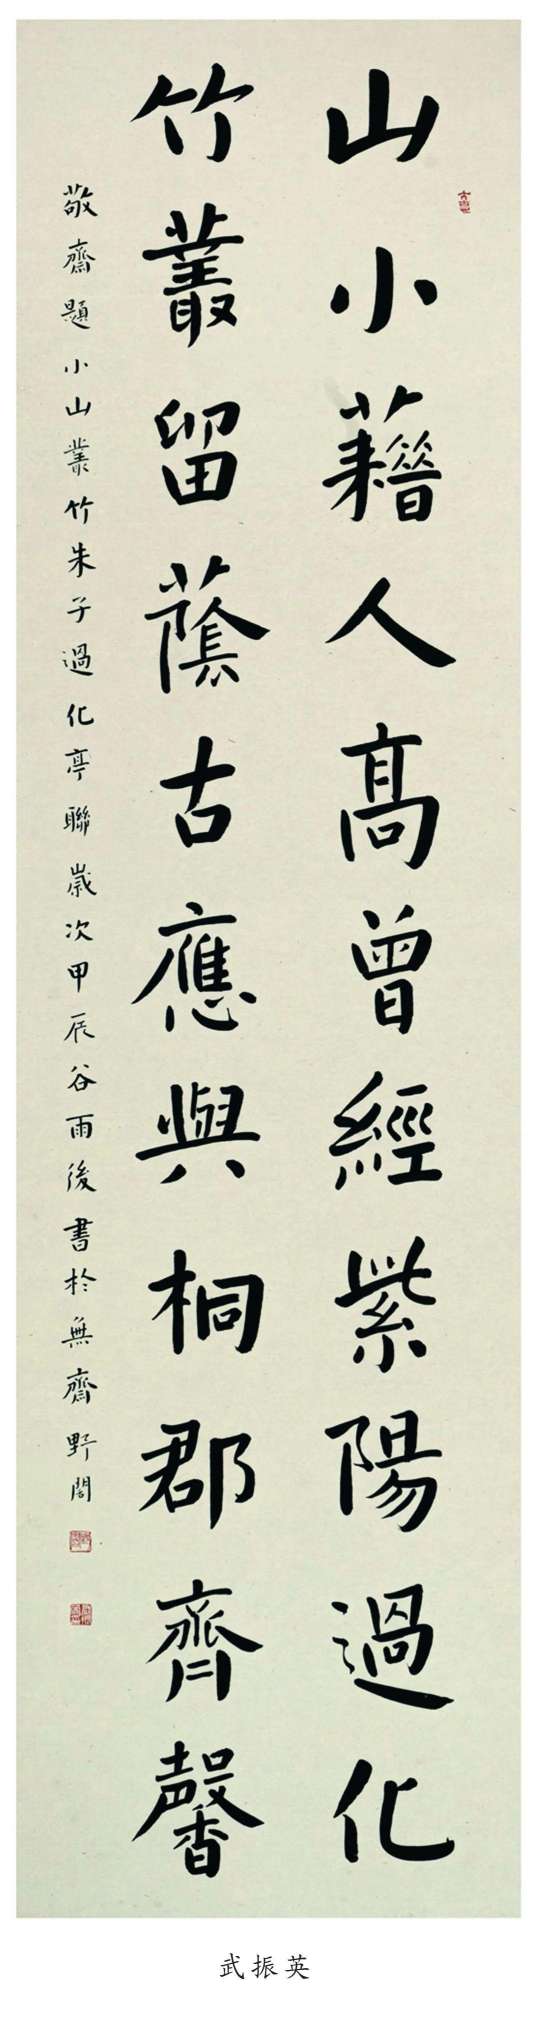 山小藉人高曾經紫陽過化
竹叢留蔭古應與桐郡齊馨
敬齋題小山叢竹朱子過化亭聯歲次甲辰谷雨後書於無齋野閣
武振英